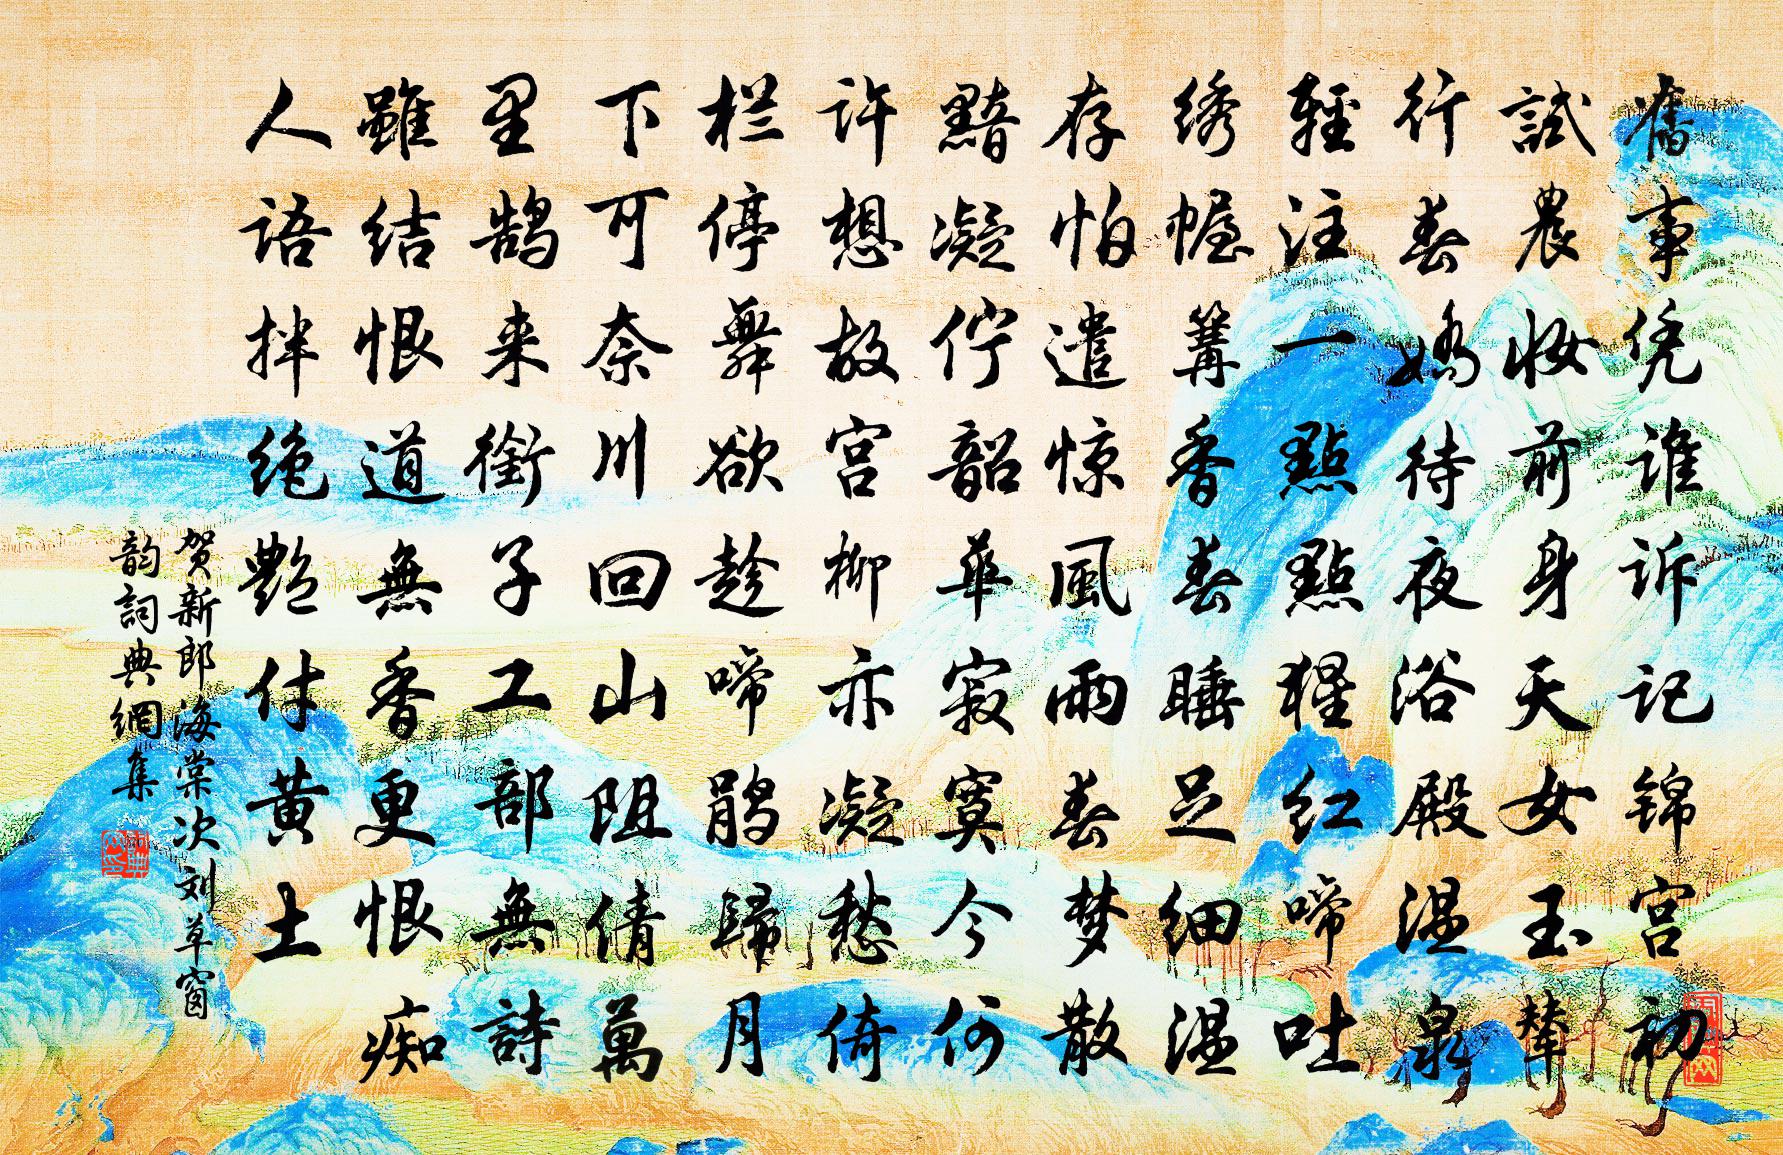 舊事凭谁诉记锦宫初
試農妝前身天女玉辇
行春嬌待夜浴殿温泉
輕注一點點猩红啼吐
绣幄篝香春睡足细温
存怕遣惊風雨春梦散
黯凝伫韶華寂寞今何
许想故宫柳亦凝愁倚
栏停舞欲趁啼鹃歸月
下可奈川回山阻倩萬
里鹄来銜子工部無詩
雖结恨道無香更恨痴
人语拌绝艷付黄土
贺新郎海棠次刘草窗
韵詞典網集